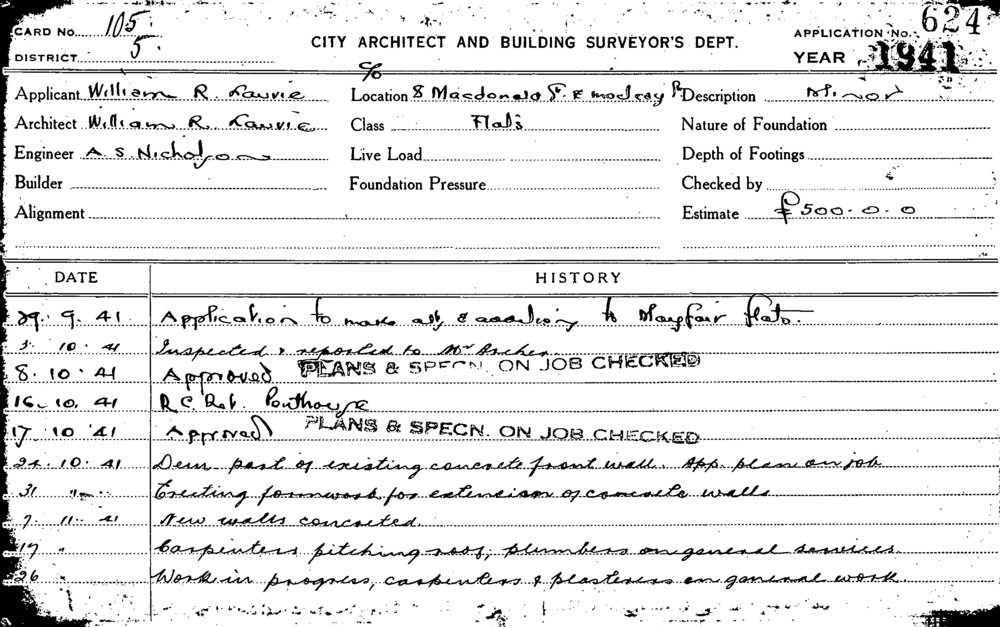 CARD No. 105
DISTRICT 5
CITY ARCHITECT AND BUILDING SURVEYOR'S DEPT.
APPLICATION No. 624
YEAR 1941
Applicant William R. Laurie
c/o
Location 8 Macdonald St. &
Description Minor
Architect William R. Laurie
Class Flats
Nature of Foundation
Engineer A. S. Nicholson
Live Load
Depth of Footings
Builder
Foundation Pressure
Checked by
Alignment
Estimate £500.0.0
DATE HISTORY
29. 9. 41 Application to make to Mayfair flats.
3. 10. 41 Inspected & reported to Mr Archer
8. 10. 41 Approved PLANS & SPECN. ON JOB CHECKED
16. 10. 41 R.C. Det. Penthouse
17 10 41 Approved PLANS & SPECN. ON JOB CHECKED
24. 10. 41 Dem. part of existing concrete front wall. App. plan on job
31 " Erecting formwork for extension of concrete walls
7. 11. 41 New walls concreted.
17 " Carpenters pitching roof, plumbers on general services.
26 " Work in progress, carpenters & plasterers on general work.